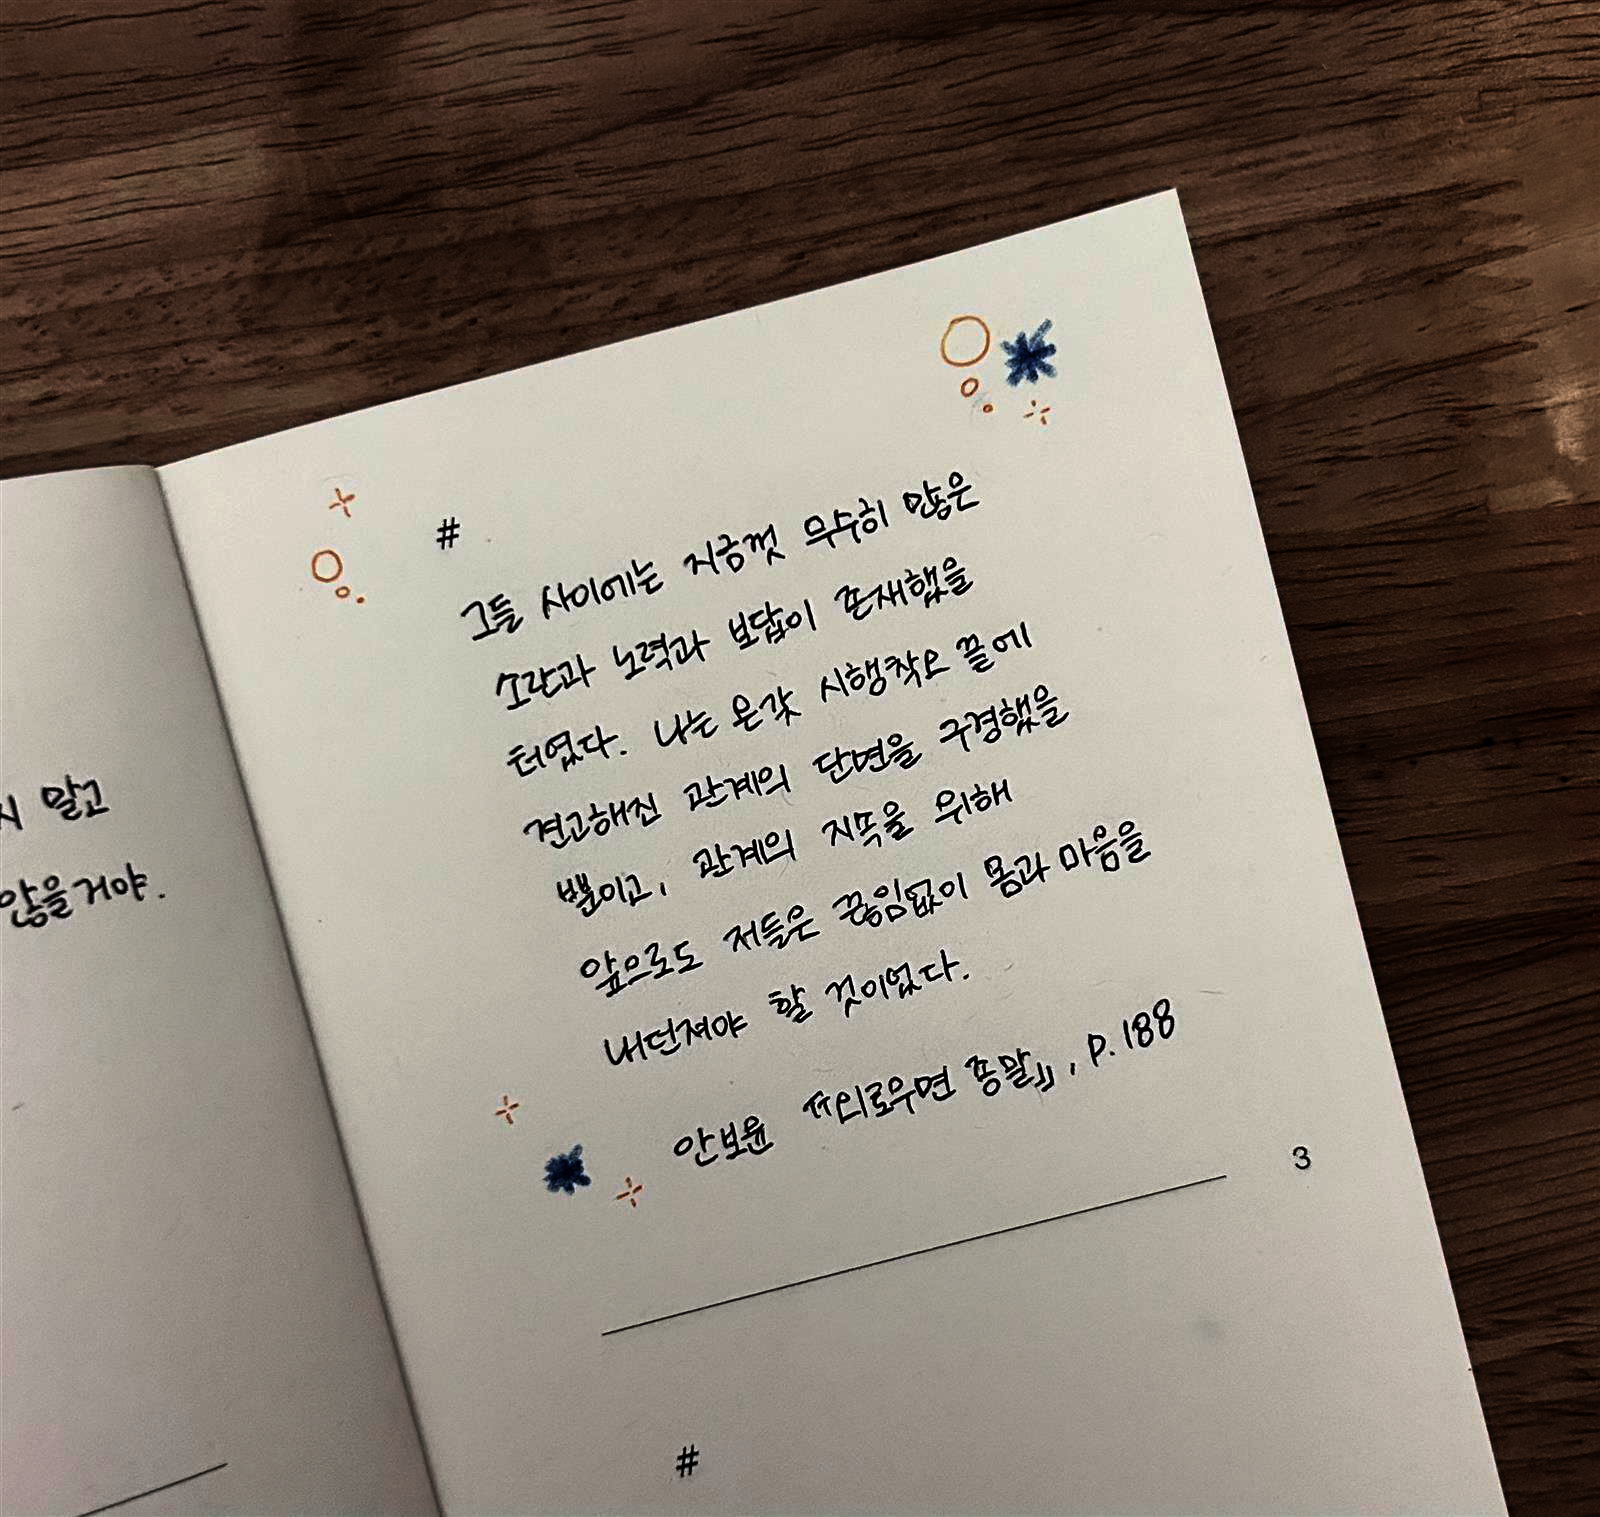 시 말고
않을거야.
#
그들 사이에는 지금껏 무수히 많은
소란과 노력과 보답이 존재했을
터였다. 나는 온갖 시행착오 끝에
견고해진 관계의 단면을 구경했을
뿐이고, 관계의 지속을 위해
앞으로도 저들은 끊임없이 몸과 마음을
내던져야 할 것이었다.
안보윤 『외로우면 종말』, p.188
3
#